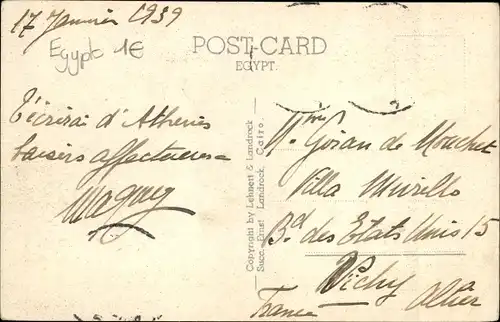 17 Janvier 1939
Egypte 1€
POST-CARD
EGYPT.
T'écrirai d'Athènes
baisers affectueuse=
Maguy
Copyright by Lehnert & Landrock
Succ. Ernst Landrock, Cairo.
de Mouchet
Villa Murillo
B.d des Etats Unis 15
Vichy
Allier
France